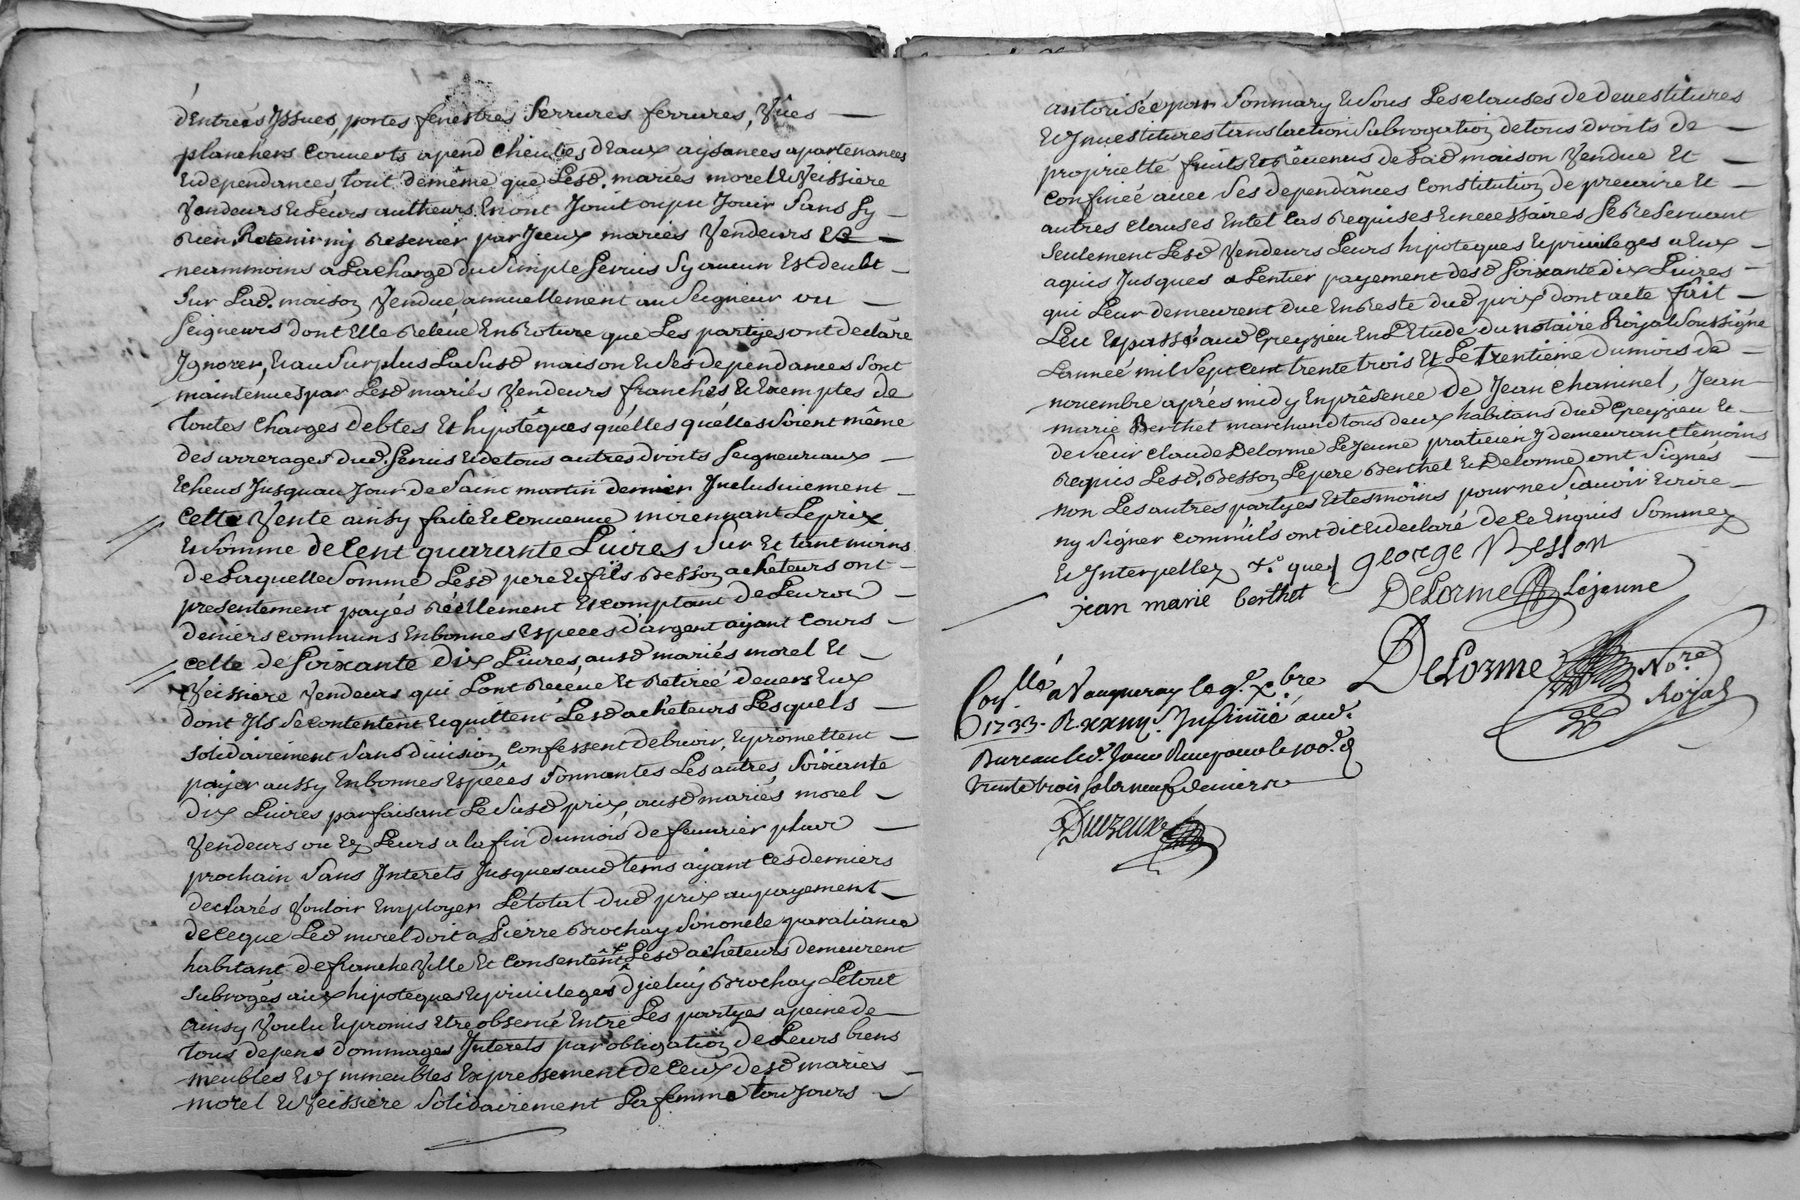 d'Entrées Jssues, portes fenestres Serrures ferrures, Vûes
planchers Couverts apend cheutes d'Eaux aysances apartenances
et dependances, tout demême que Lesd. mariés morel et Veissiere
Vendeurs et Leurs autheurs En ont Jouit ou pu Jouir Sans Sy
Rien Retenir ny Reserver par Jceux mariés Vendeurs
neammoins a La charge du Simple Servis Sy aucun Est deubt
Sur Lad. maison Vendue annuellement au Seigneur ou
Seigneurs dont Elle Releve En Roture que Les partyes ont declaré
Jgnorer, et au Surplus La Susd maison et Ses dependances Sont
maintenues par Lesd mariés Vendeurs franches et Exemptes de
toutes Charges debtes Et hipotêques quélles quélles Soient même
des arrerages dud. Servis et de tous autres droits Seigneuriaux
Echeus Jusquau Jour de Saint martin dernier Jnclusivement
Cette Vente ainsy faite et Convenue moiennant Le prix
et Somme de Cent quarante Livres Sur Et tant moins
de Laquelle Somme Lesd pere et fils Besson acheteurs ont
presentement payés Réellement et comptant de Leurs
deniers communs En bonnes Especes d'argent ayant Cours
celle de Soixante dix Livres, ausd mariés morel Et
Veissiere Vendeurs qui Lont Receue Et Retirée devers Eux
dont Jls Se contentent et quittent Lesd acheteurs Lesquels
solidairement Sans division confessent debvoir, et promettent
payer aussy En bonnes Espêces Sonnantes Les autres Soixante
dix Livres parfaisant Le Susd prix, ausd mariés morel
Vendeurs ou Ez Leurs a la fin du mois de fevrier plus
prochain Sans Jnterets Jusques aud tems ayant Ces derniers
declarés Vouloir Employer Le total dud prix au payement
de Ce que Led morel doit a Pierre Brochay Son oncle par aliance
habitant de francheville Et Consentent Lesd acheteurs demeurent
Subrogés aux hipoteques et privileges djceluy Brochay Le tout
ainsy Voulu et promis Etre observé Entre Les partyes a peine de
tous depens dommages Jnterets par obligation de Leurs biens
meubles et Jmmeubles Expressement de Ceux desd mariés
morel et Veissiere Solidairement La femme toujours
autorisée par Son mary et Sous Les clauses de devestitures
et Jnvestitures translaction Subrogation de tous droits de
proprietté fruits et Rêvenus de Lad maison Vendue Et
confinéé avec Ses dependânces Constitution de precaire Et
autres clauses En tel Cas Requises et necessaires Se Reservant
Seulement Lesd Vendeurs Leurs hipoteques et privileges a Eux
aquis Jusques a Lentier payement desd Soixante dix Livres
qui Leur demeurent due En Reste dud prix dont acte fait
Leu et passé aud Greyzieu En L'Etude du notaire Royal Soussigné
Lannéé mil Sept cent trente trois Et Le trentieme du mois de
novembre aprés midy En présence de Jean Chaninel, Jean
marie Berthet marchand tous deux habitans dud Greyzieu Et
de Sieur claude Delorme Le Jeune praticien y demeurant témoins
Requis Lesd. Besson Le pere Berthet et Delorme ont Signés
non Les autres partyes Et tesmoins pour ne Scavoir Ecrire
ny Signer comm'ils ont dit et declaré de Ce Enquis Sommez
et Jnterpellez
george Besson
jean marie berthet
DeLorme Lejeune
DeLorme No.re
Royal
Con.llé a Vaugneray le 9.e x.bre
1733. Jnsinüé aud.
Bureau led. Jour
trente trois sols neuf deniers